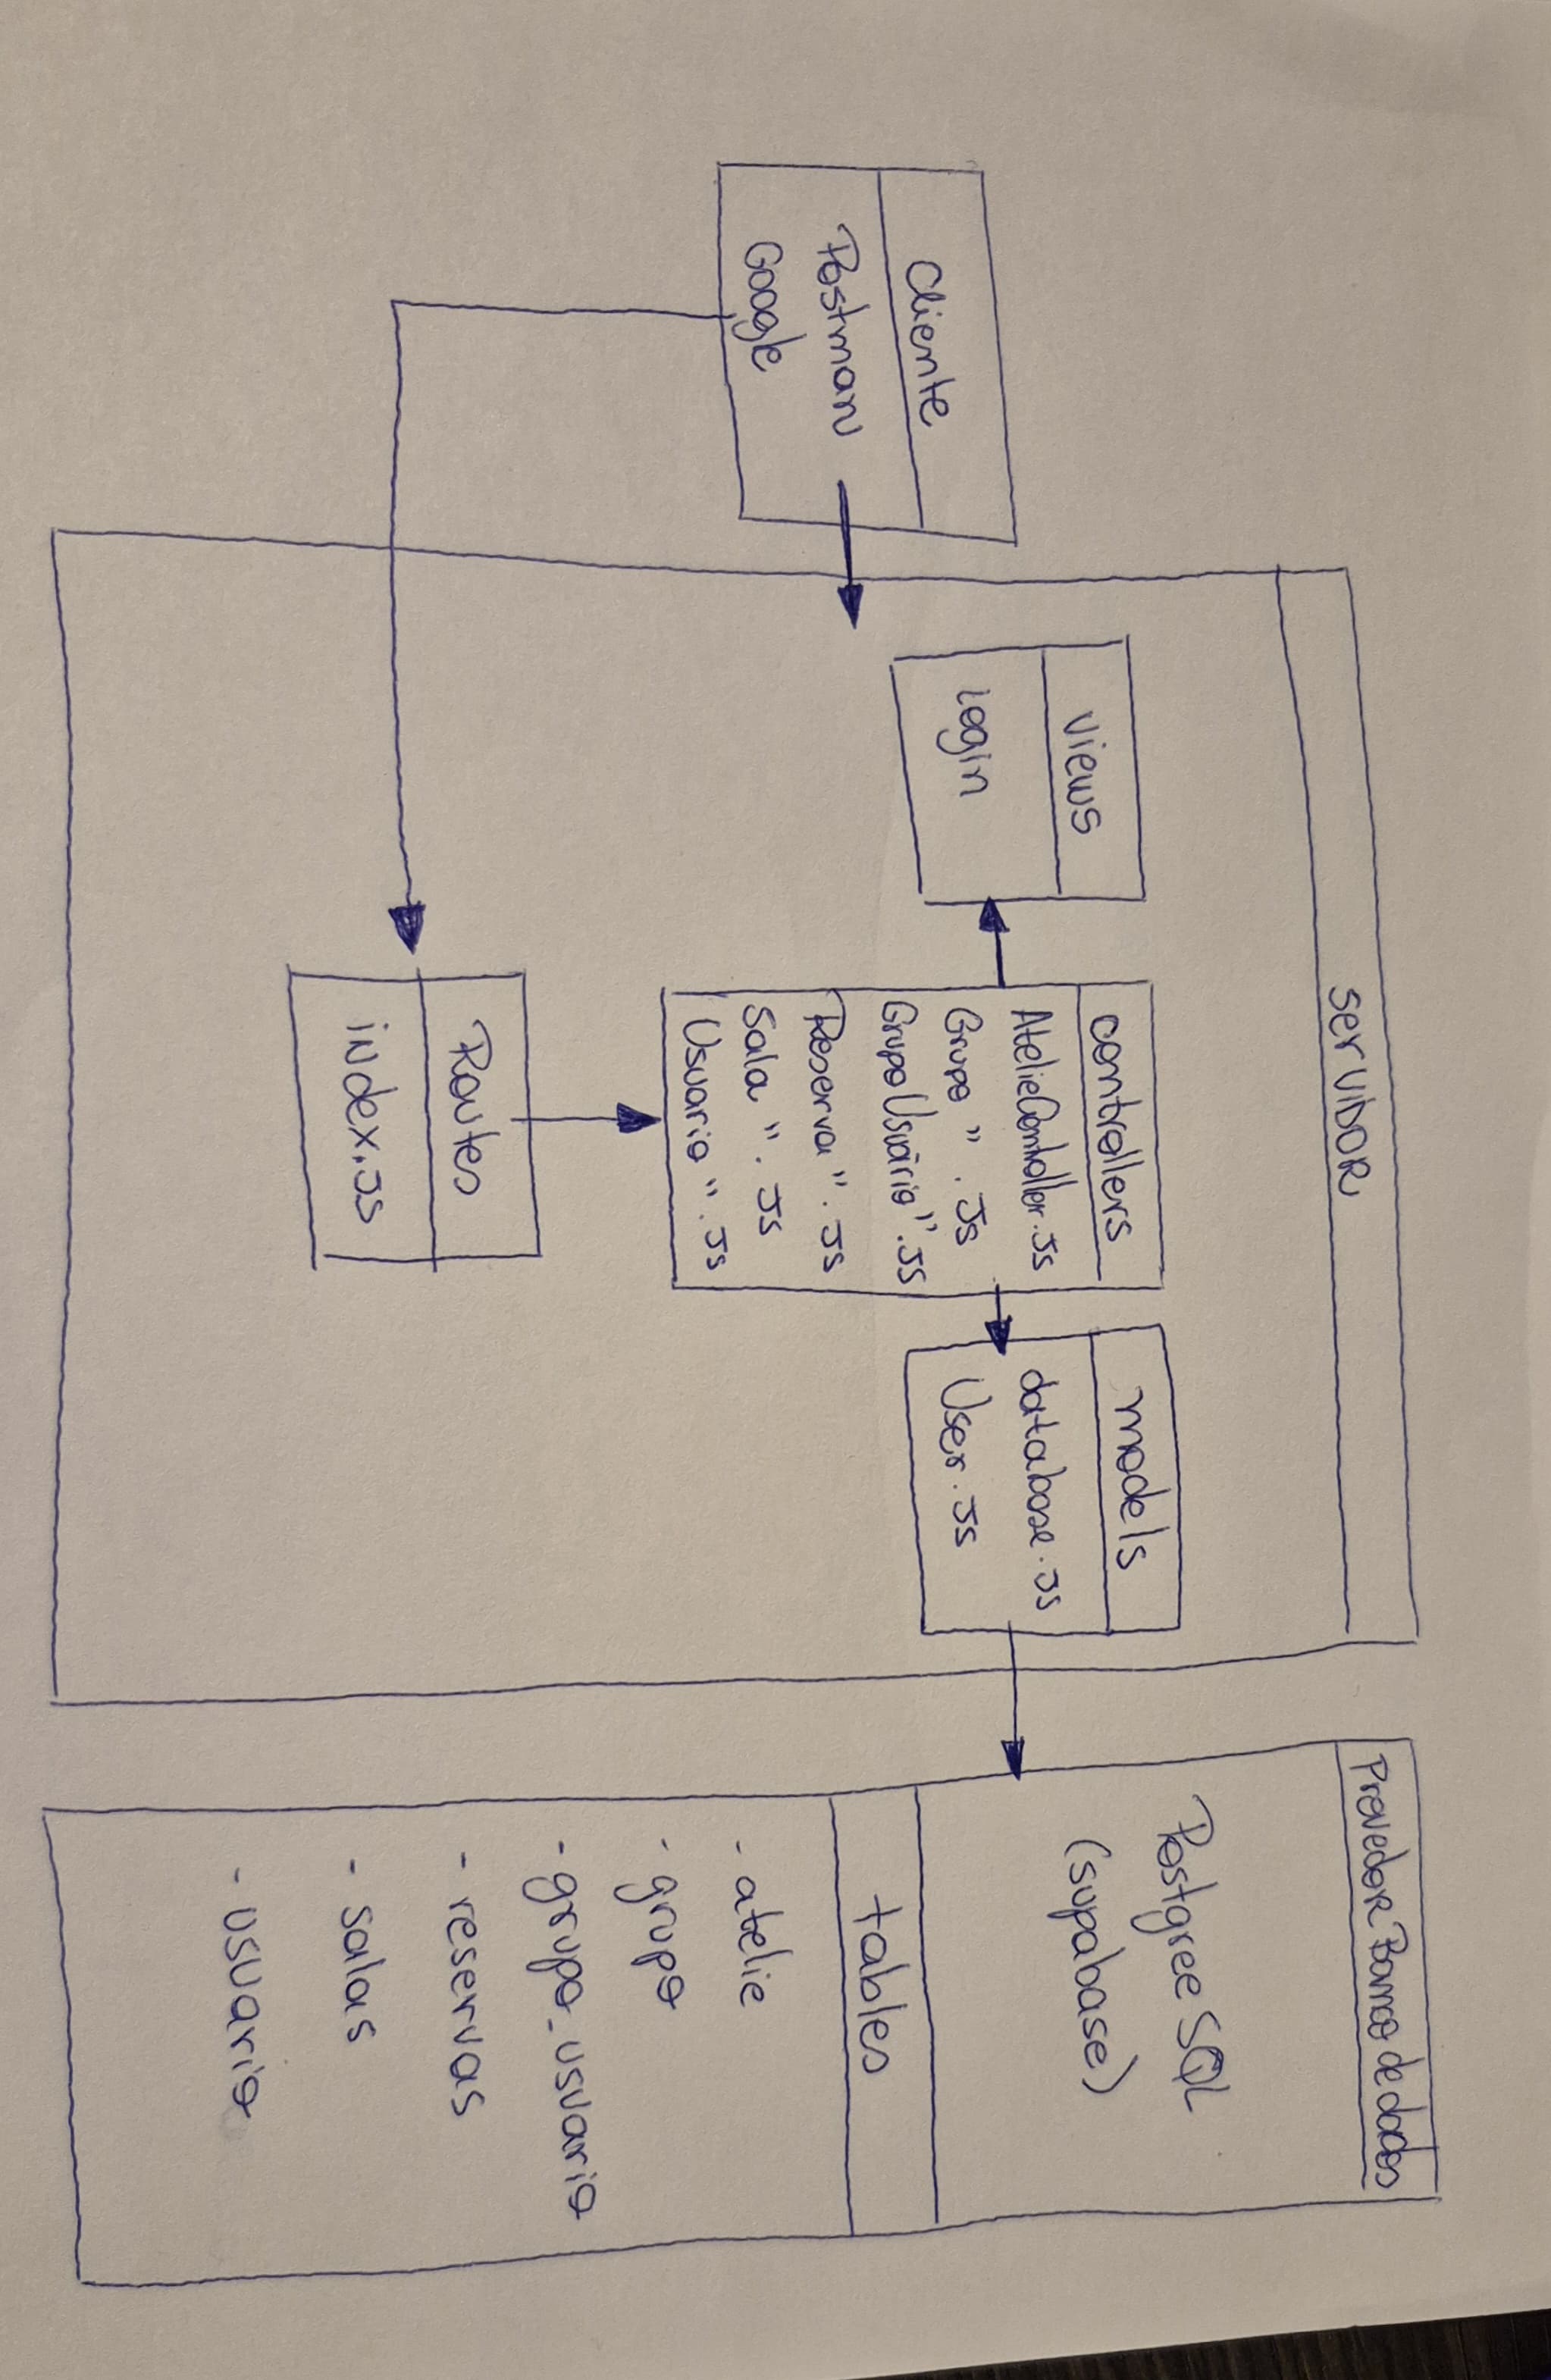 servidor
Cliente
Postman
Google
views
login
controllers
AtelieContoller.js
Grupo ".js
GrupoUsuário".js
Reserva ".js
Sala ".js
Usuario ".js
Routes
index.js
models
database.js
User.js
Provedor Banco de dados
PostgreeSQL
(supabase)
tables
- atelie
- grupo
- grupo_usuario
- reservas
- salas
- usuario